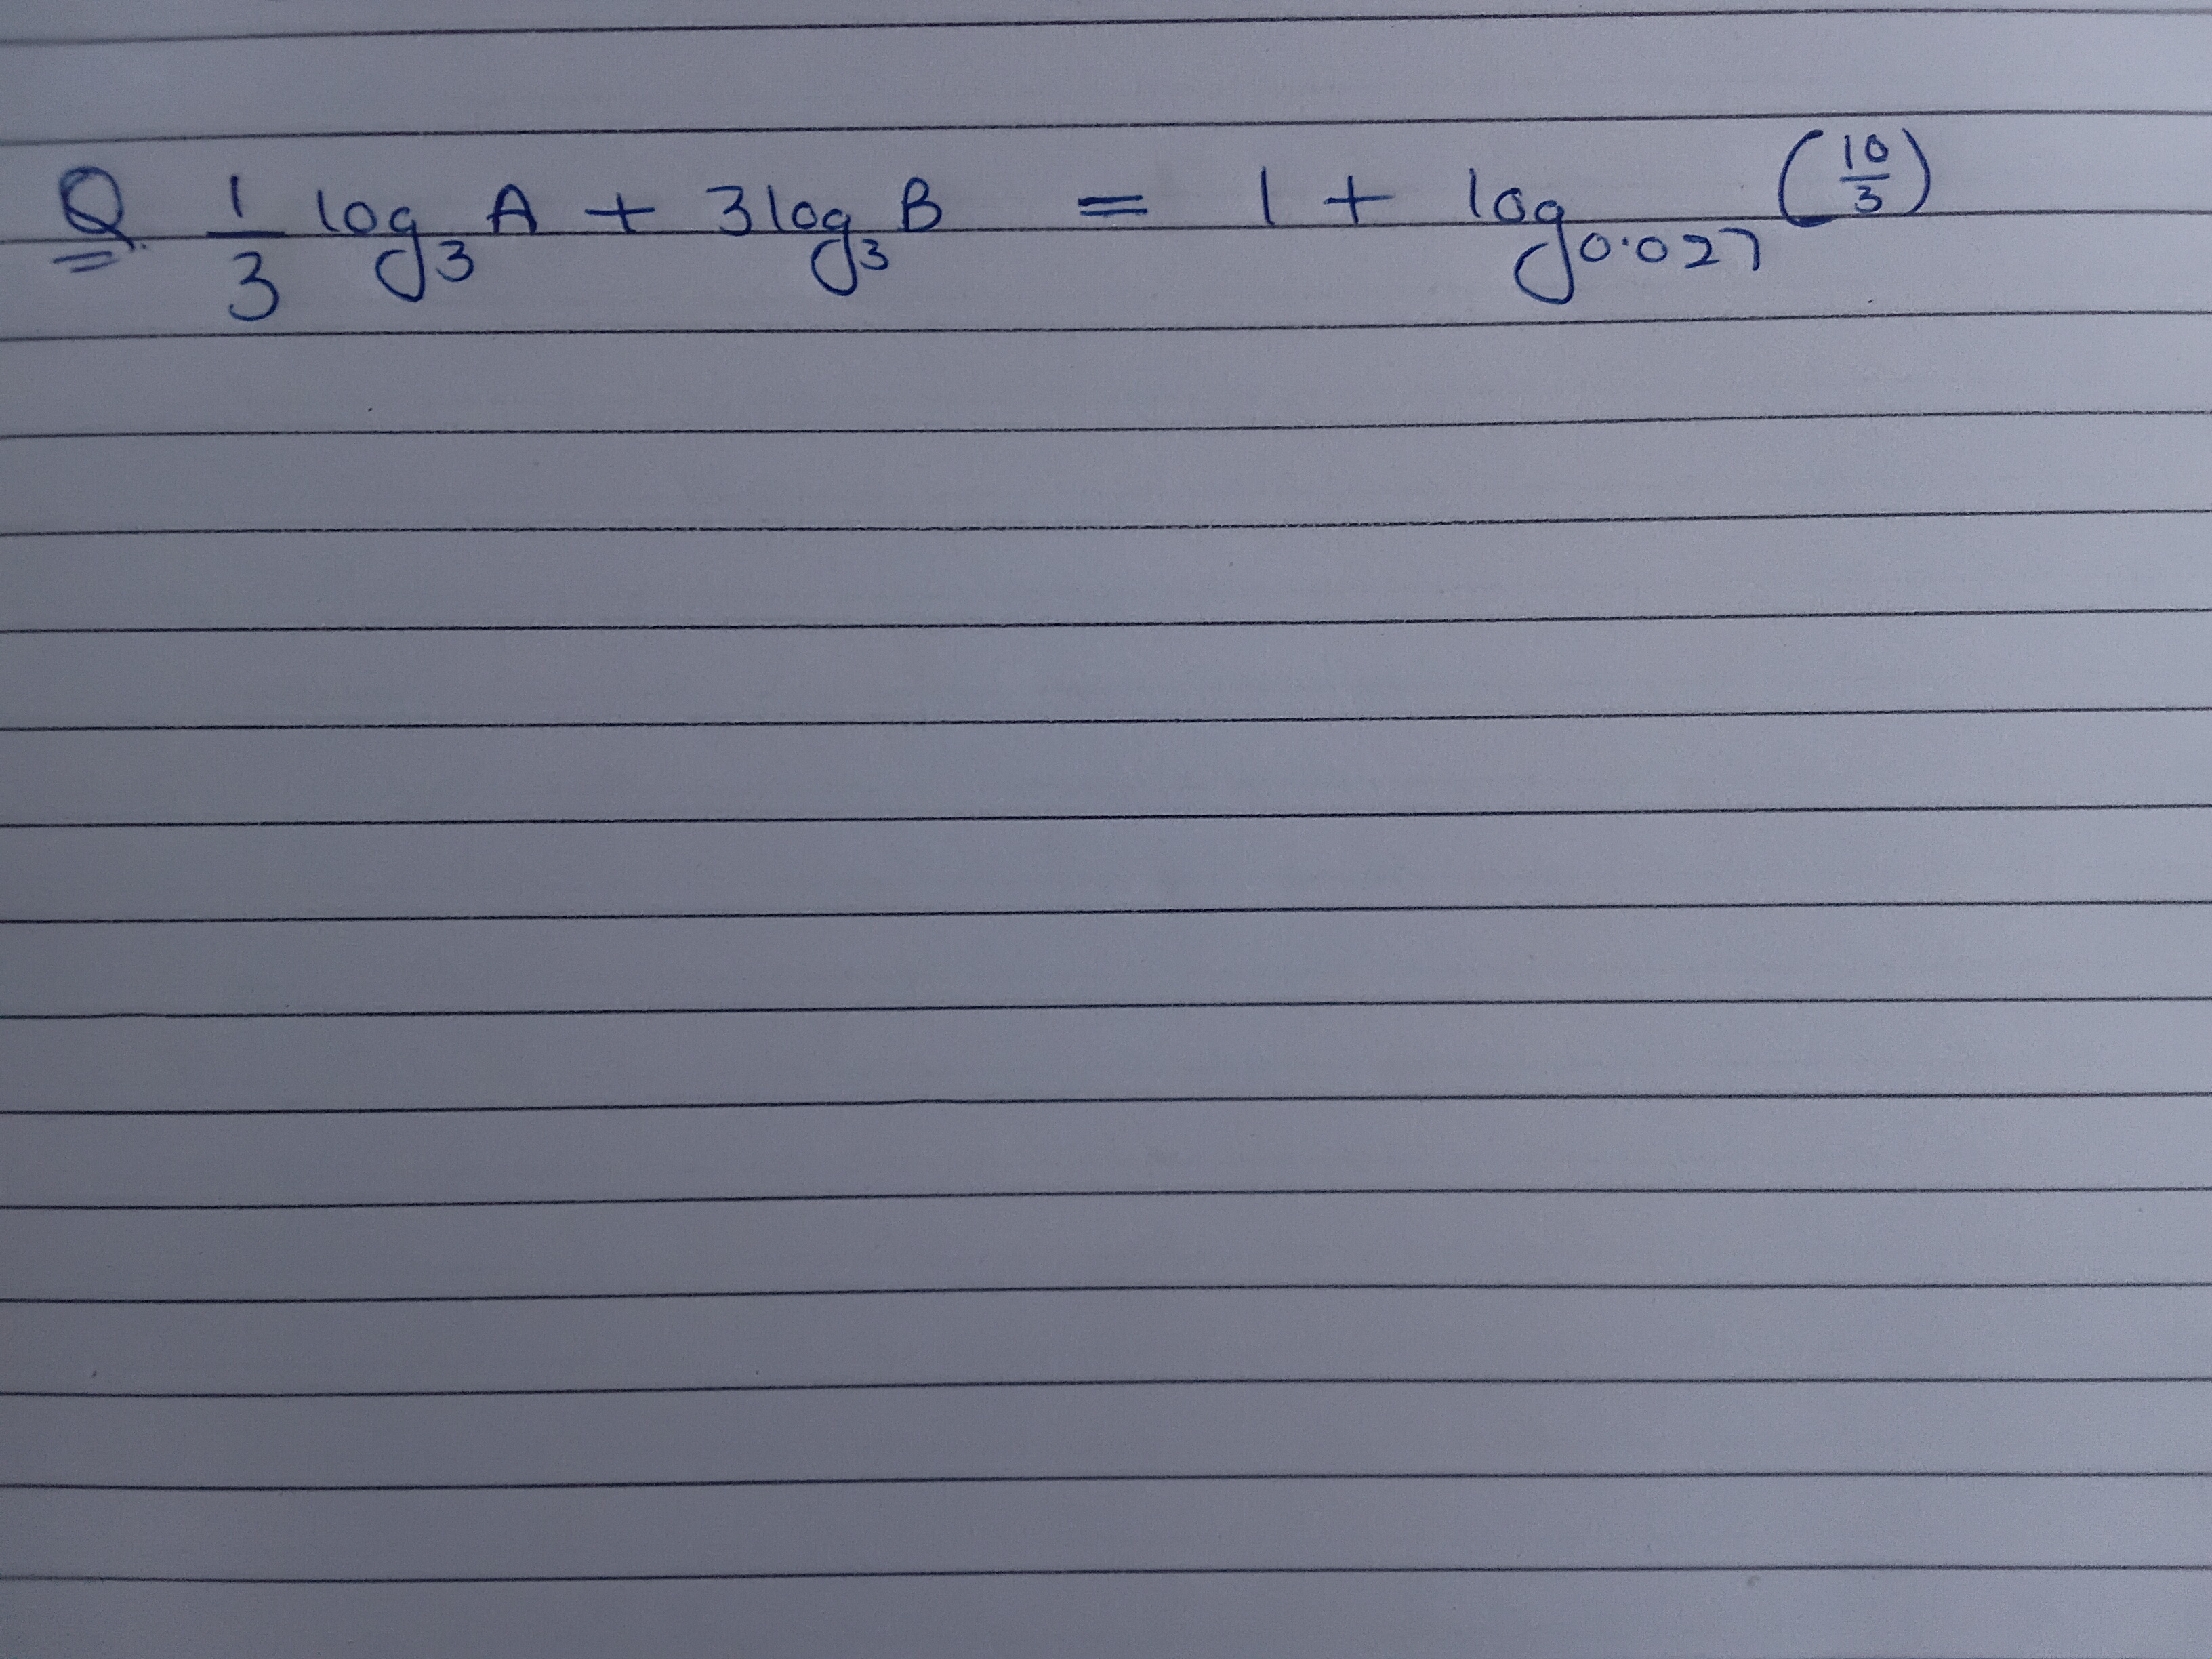 Q. 1/3 log₃ A + 3 log₃ B = 1 + log₀.₀₂₇ (10/3)